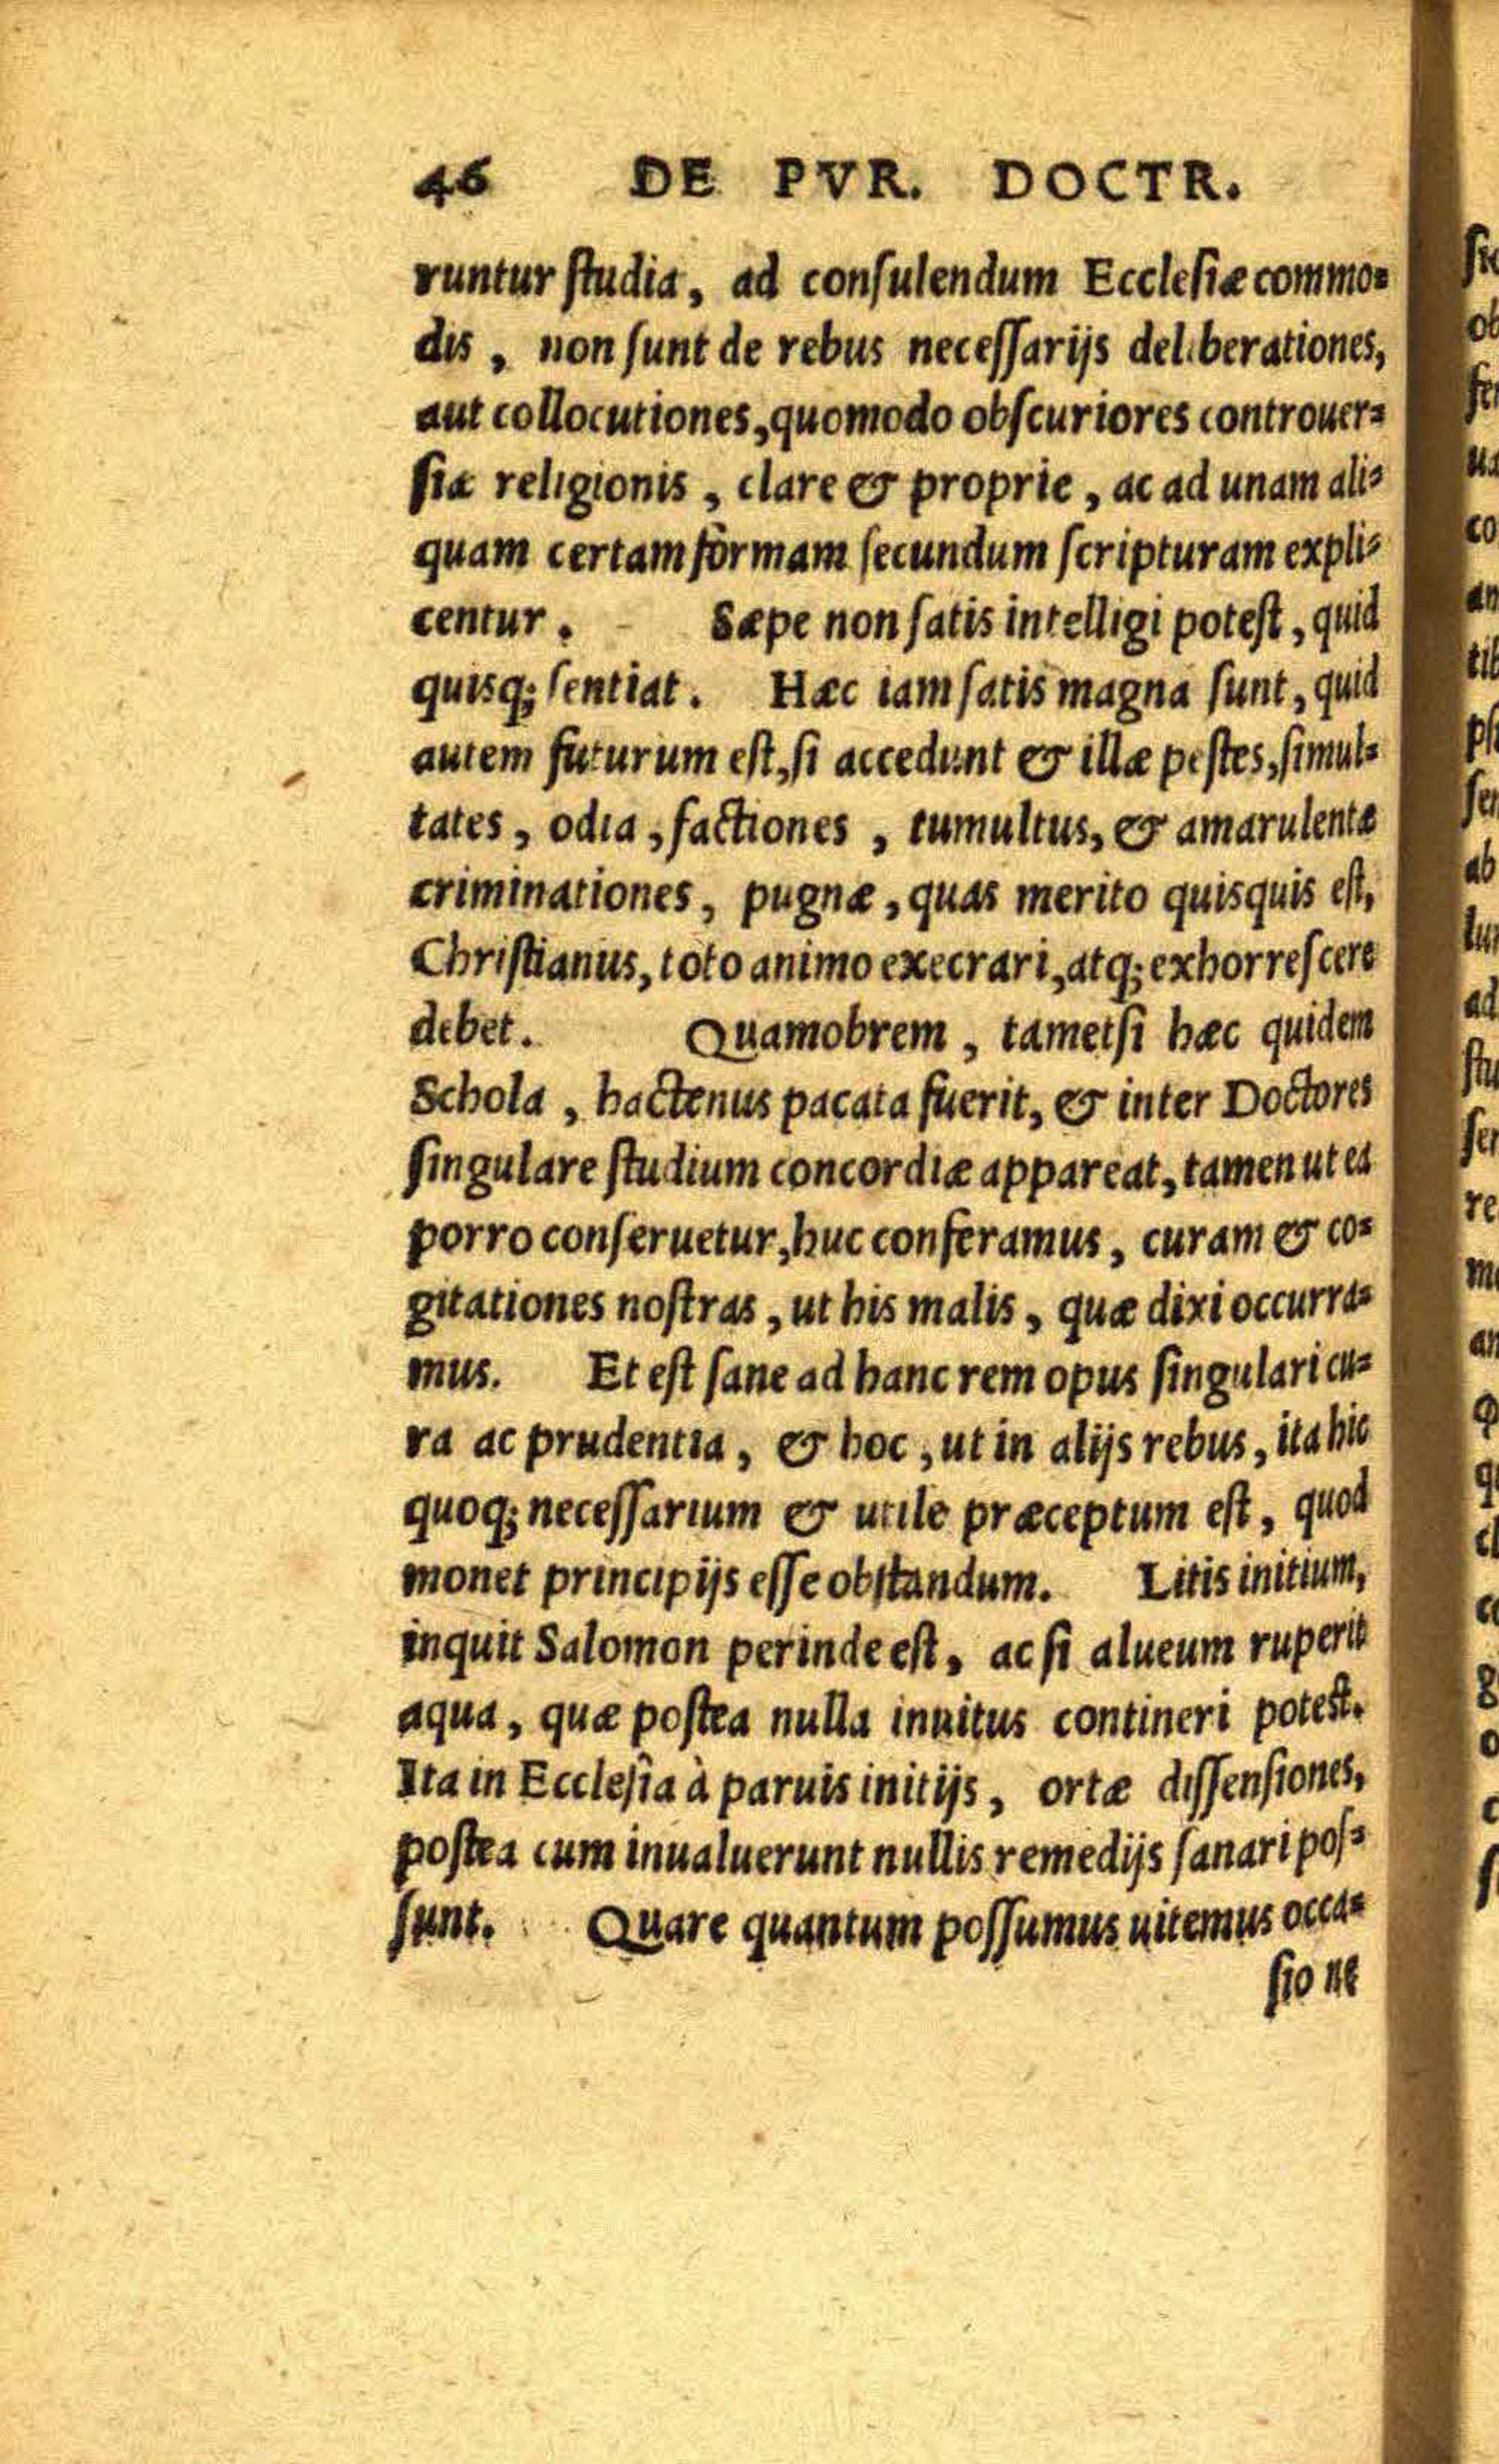 46 DE PVR. DOCTR.
runtur ſtudia, ad conſulendum Eccleſiæ commo⸗
dis, non ſunt de rebus neceſſarijs deliberationes,
aut collocutiones, quomodo obſcuriores controuer⸗
ſiæ religionis, clare & proprie, ac ad unam ali⸗
quam certam formam ſecundum ſcripturam expli⸗
centur. Sæpe non ſatis intelligi poteſt, quid
quisq; ſentiat. Hæc iam ſatis magna ſunt, quid
autem futurum eſt, ſi accedunt & illæ peſtes, ſimul⸗
tates, odia, factiones, tumultus, & amarulentæ
criminationes, pugnæ, quas merito quisquis eſt,
Chriſtianus, toto animo execrari, atq; exhorreſcere
debet. Quamobrem, tametſi hæc quidem
Schola, hactenus pacata fuerit, & inter Doctores
ſingulare ſtudium concordiæ appareat, tamen ut ea
porro conſeruetur, huc conferamus, curam & co⸗
gitationes noſtras, ut his malis, quæ dixi occurra⸗
mus. Et eſt ſane ad hanc rem opus ſingulari cu⸗
ra ac prudentia, & hoc, ut in alijs rebus, ita hic
quoq; neceſſarium & utile præceptum eſt, quod
monet principijs eſſe obſtandum. Litis initium,
inquit Salomon perinde eſt, ac ſi alueum ruperit
aqua, quæ poſtea nulla inuitus contineri poteſt.
Ita in Eccleſia à paruis initijs, ortæ diſſenſiones,
poſtea cum inualuerunt nullis remedijs ſanari poſ⸗
ſunt. Quare quantum poſſumus uitemus occa⸗
ſione